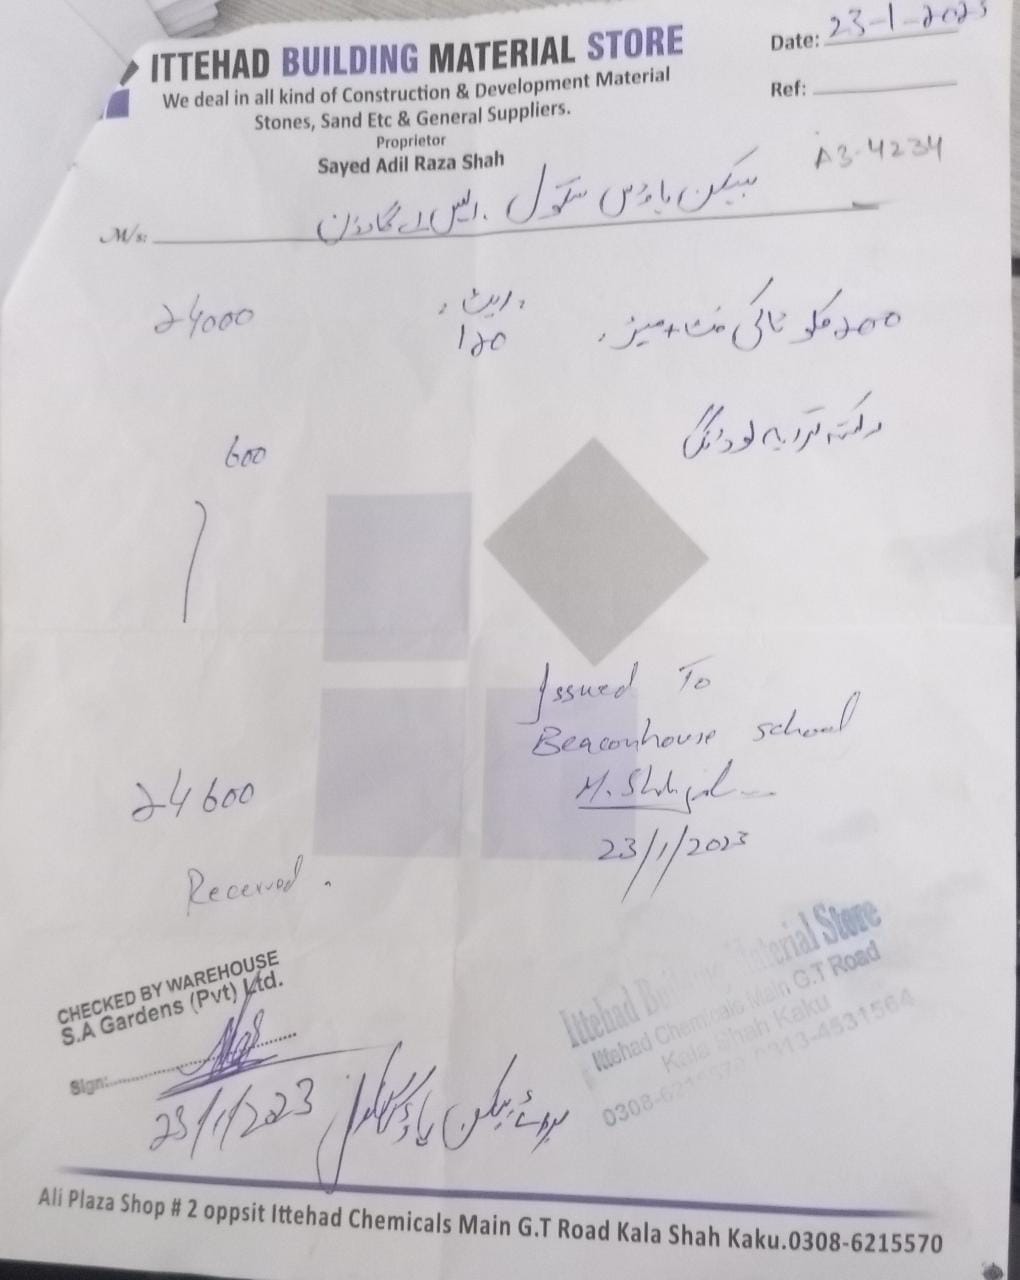 ITTEHAD BUILDING MATERIAL STORE
We deal in all kind of Construction & Development Material
Stones, Sand Etc & General Suppliers.
Proprietor
Sayed Adil Raza Shah
Date: 23-1-2023
Ref:
A3-4234
M/s: بیکن ہاؤس سکول . ایس اے گارڈن
200 ریٹ 24000
120
رکشہ لوڈنگ
600
Issued To
Beaconhouse school
24600
23/1/2023
Received.
CHECKED BY WAREHOUSE
S.A Gardens (Pvt) Ltd.
Sign:
23/1/2023
برائے بیکن ہاؤس سکول
Ittehad Building Material Store
Ittehad Chemicals Main G.T Road
Kala Shah Kaku
0308-6215570 0313-4531564
Ali Plaza Shop # 2 oppsit Ittehad Chemicals Main G.T Road Kala Shah Kaku.0308-6215570